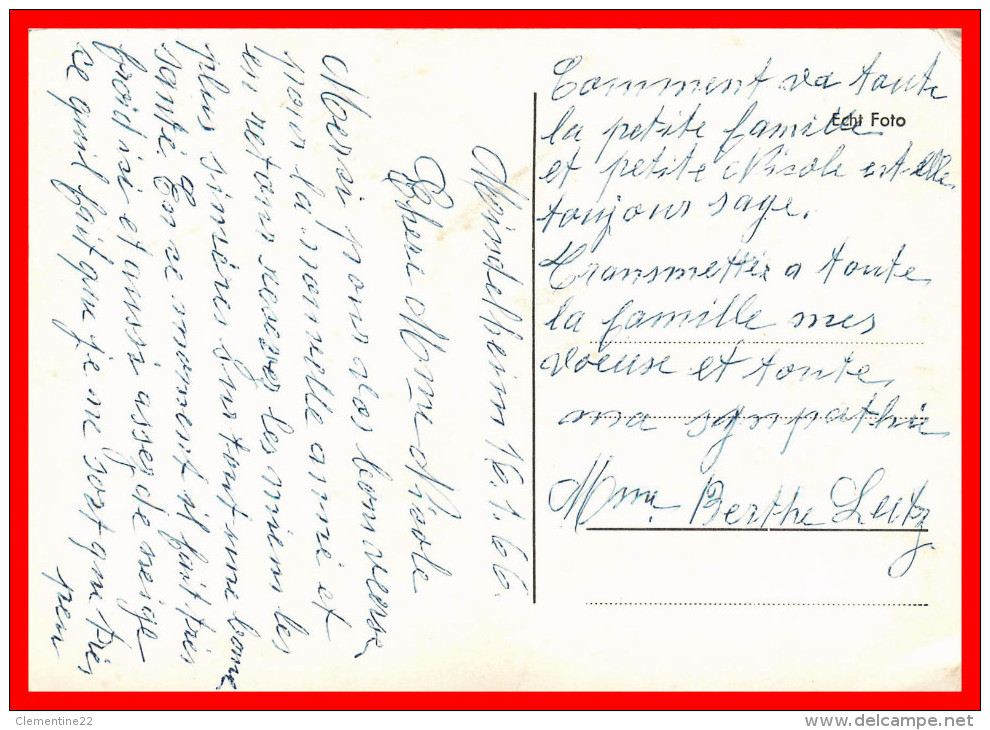 Meindelheim 16.1.66.
Chere Mme Nicole
Mersi pour vos bon veuse
pour la nouvelle anné et
en retour recever les miens les
plus sincéres surtout une bonne
santé En se moment il fait très
froid ici et aussi asser de neige
ce qui fait que je ne sort que très
peu
Comment va toute
la petite famille
et petite Nicole est elle
toujours sage.
Transmettez a toute
la famille mes
voeuse et toute
ma sympathie
Mme Berthe Lutz
Echt Foto
Clementine22
http://www.delcampe.net